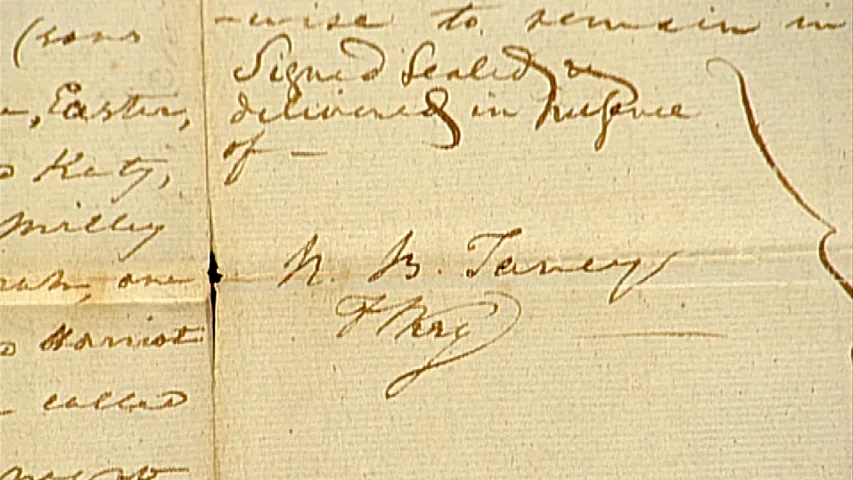 (sons
, Easter,
Katy,
Milley
one
Harriot
called
-wise to remain in
Signed Sealed &
delivered in presence
of —
R. B. Taney
F Key